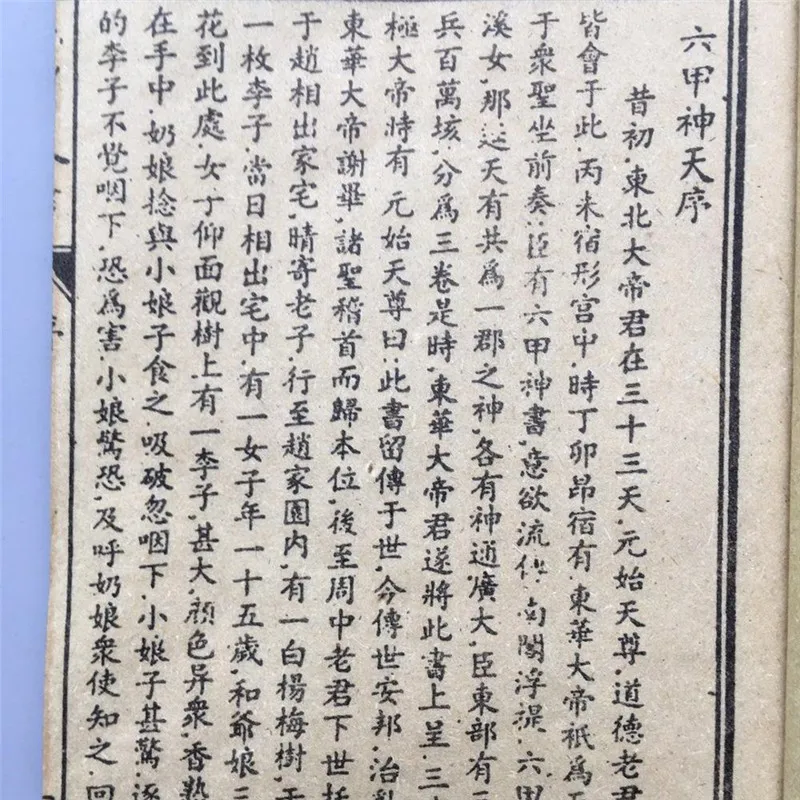 六甲神天序
昔初.東北大帝君在三十三天.元始天尊.道德老君
皆會于此.丙來宿形宫中.時丁卯昂宿有.東華大帝祇爲
于衆聖坐前奏.臣有六甲神書.意欲流傳.南閻浮提.六甲
溪女.那延天有共爲一郡之神.各有神通廣大.臣東部有三
兵百萬垓.分爲三卷是時.東華大帝君遂將此書上呈.三
極大帝時有.元始天尊曰.此書留傳于世.今傳世安邦.治亂
東華大帝謝畢.諸聖稽首而歸本位.後至周中老君下世托
于趙相出家宅.晴寄老子.行至趙家園内.有一白楊梅樹.于
一枚李子.當日相出宅中.有一女子年一十五歲.和爺娘三
花到此處.女子仰面觀樹上有一李子.甚大.顔色异衆.香熟
在手中.奶娘捻與小娘子食之.吸破忽咽下.小娘子甚驚.逐
的李子不覺咽下.恐爲害.小娘驚恐.及呼奶娘衆使知之.回